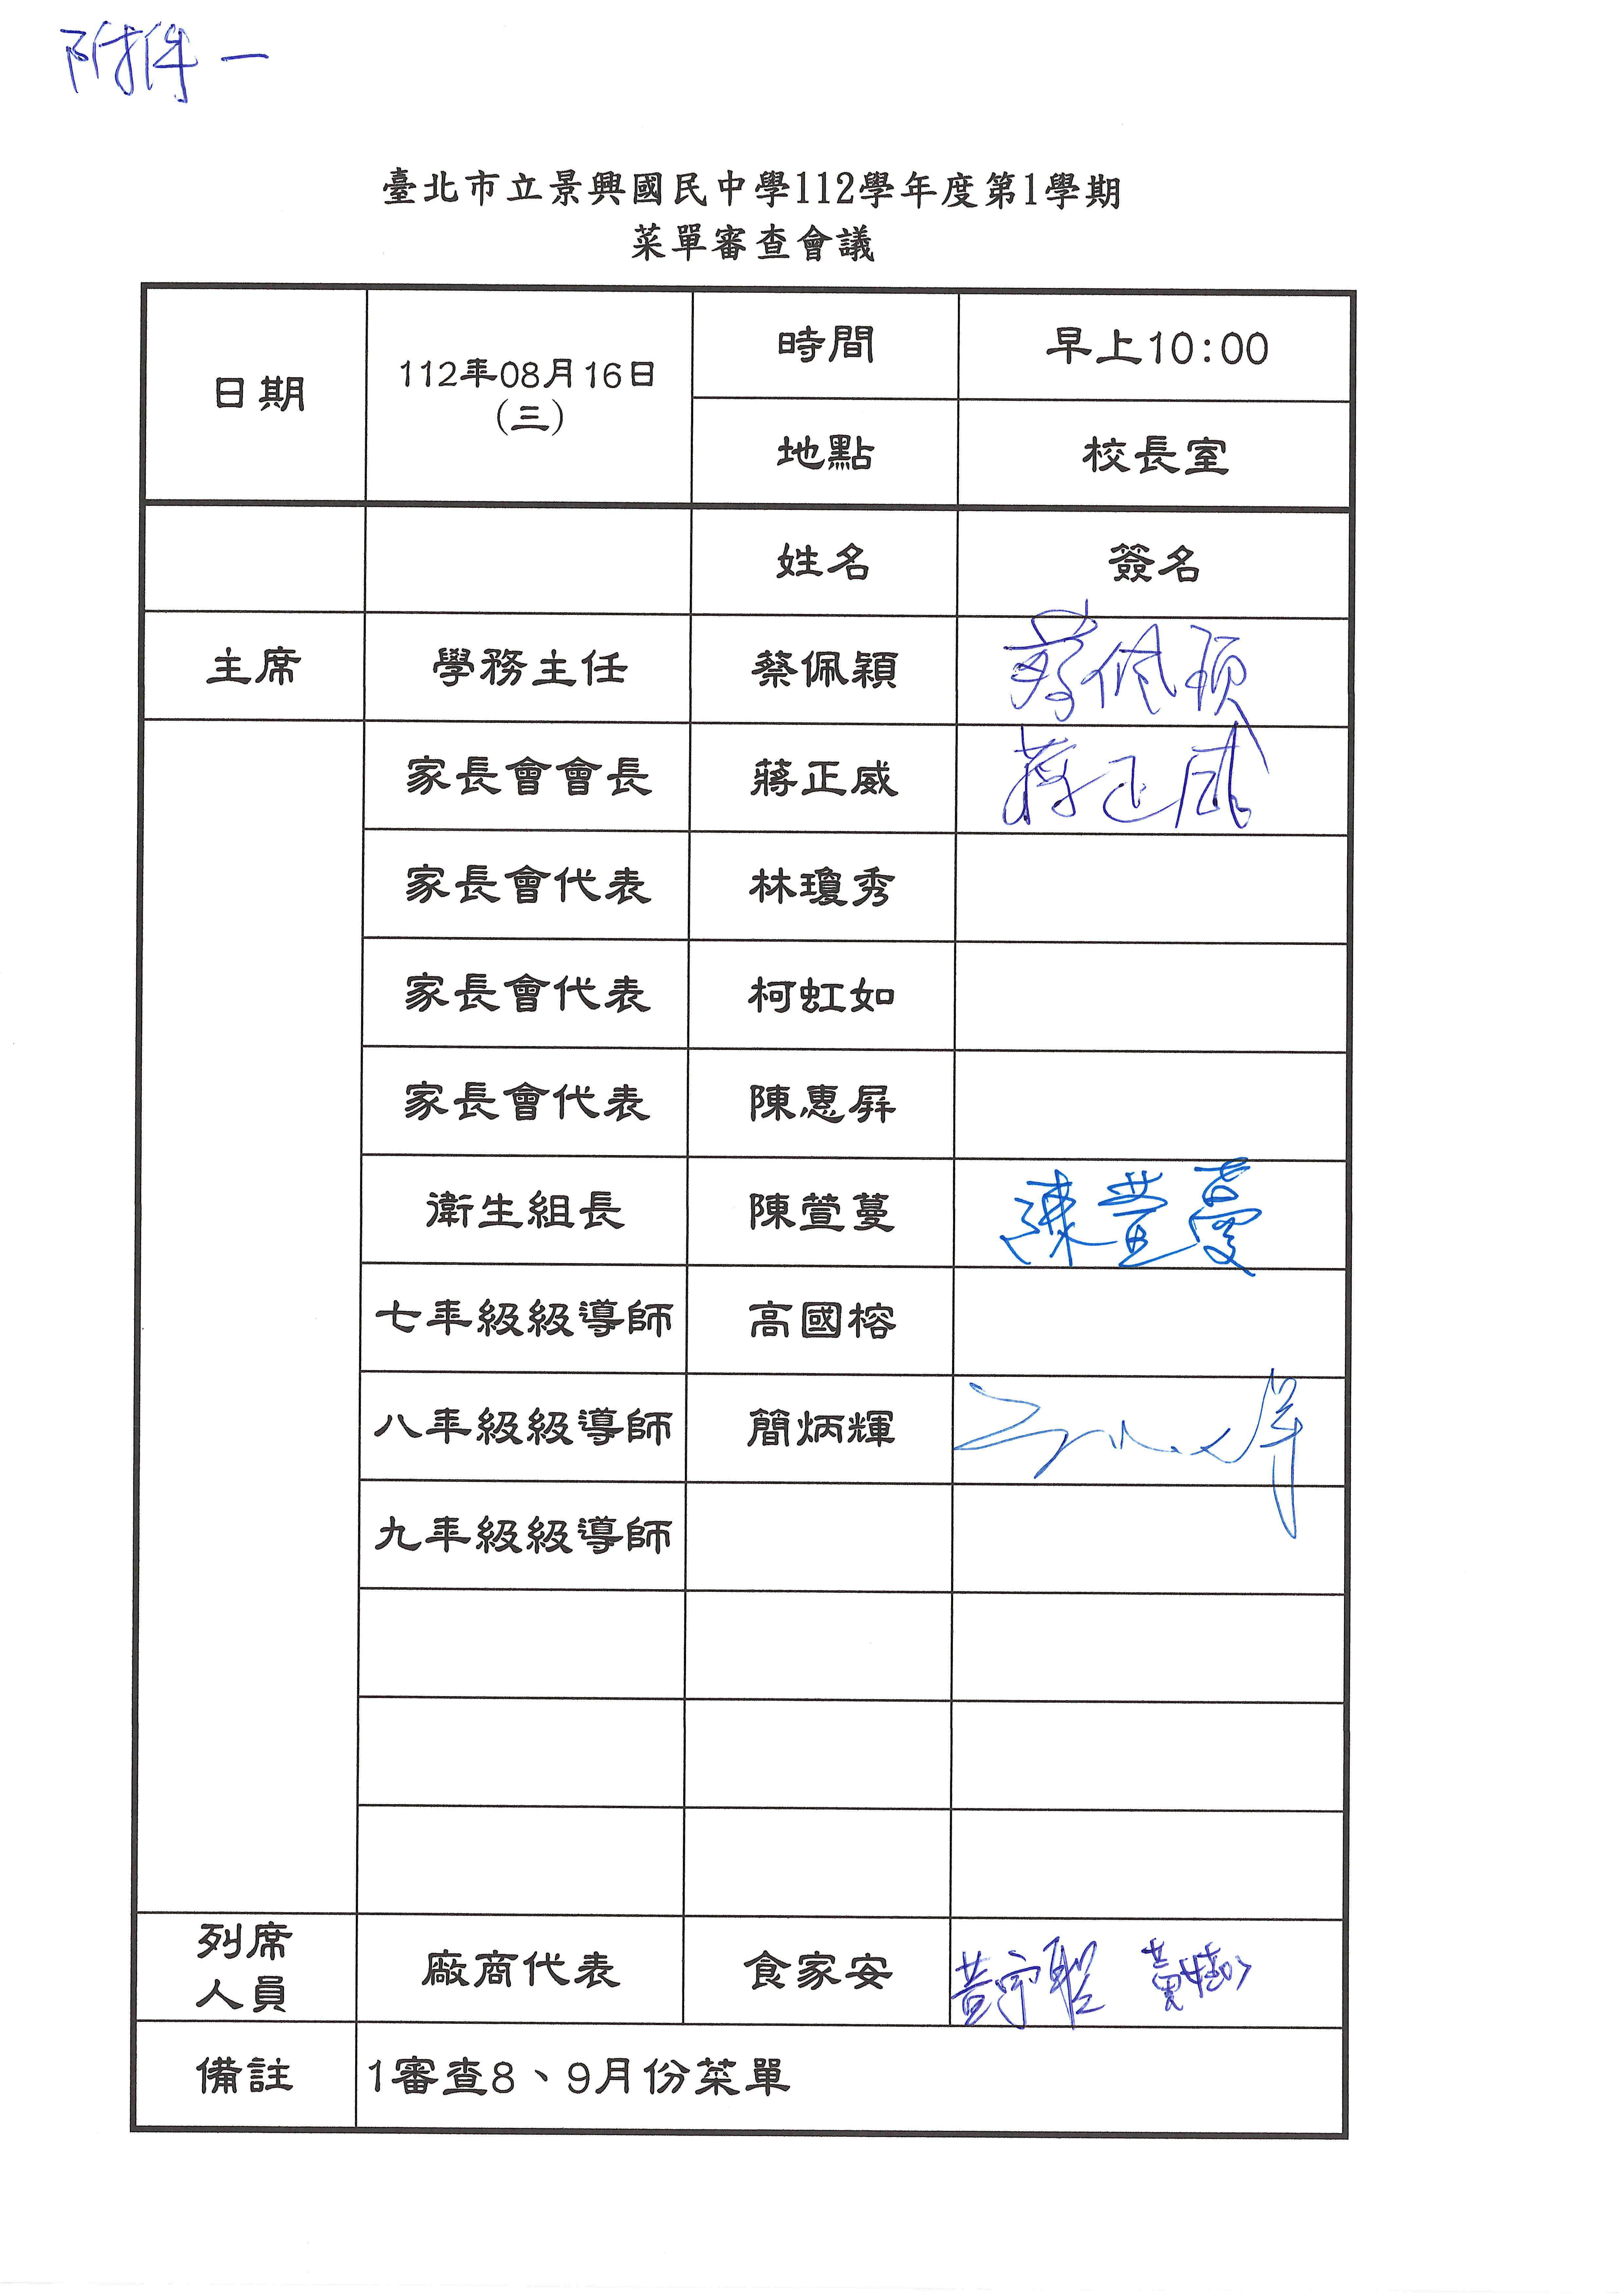 附件一
臺北市立景興國民中學112學年度第1學期
菜單審查會議
日期
112年08月16日
(三)
時間
早上10:00
地點
校長室
姓名
簽名
主席
學務主任
蔡佩穎
蔡佩穎
家長會會長
蔣正威
蔣正威
家長會代表
林瓊秀
家長會代表
柯虹如
家長會代表
陳惠屏
衛生組長
陳萱蔓
陳萱蔓
七年級級導師
高國榕
八年級級導師
簡炳輝
九年級級導師
列席
人員
廠商代表
食家安
備註
1審查8、9月份菜單